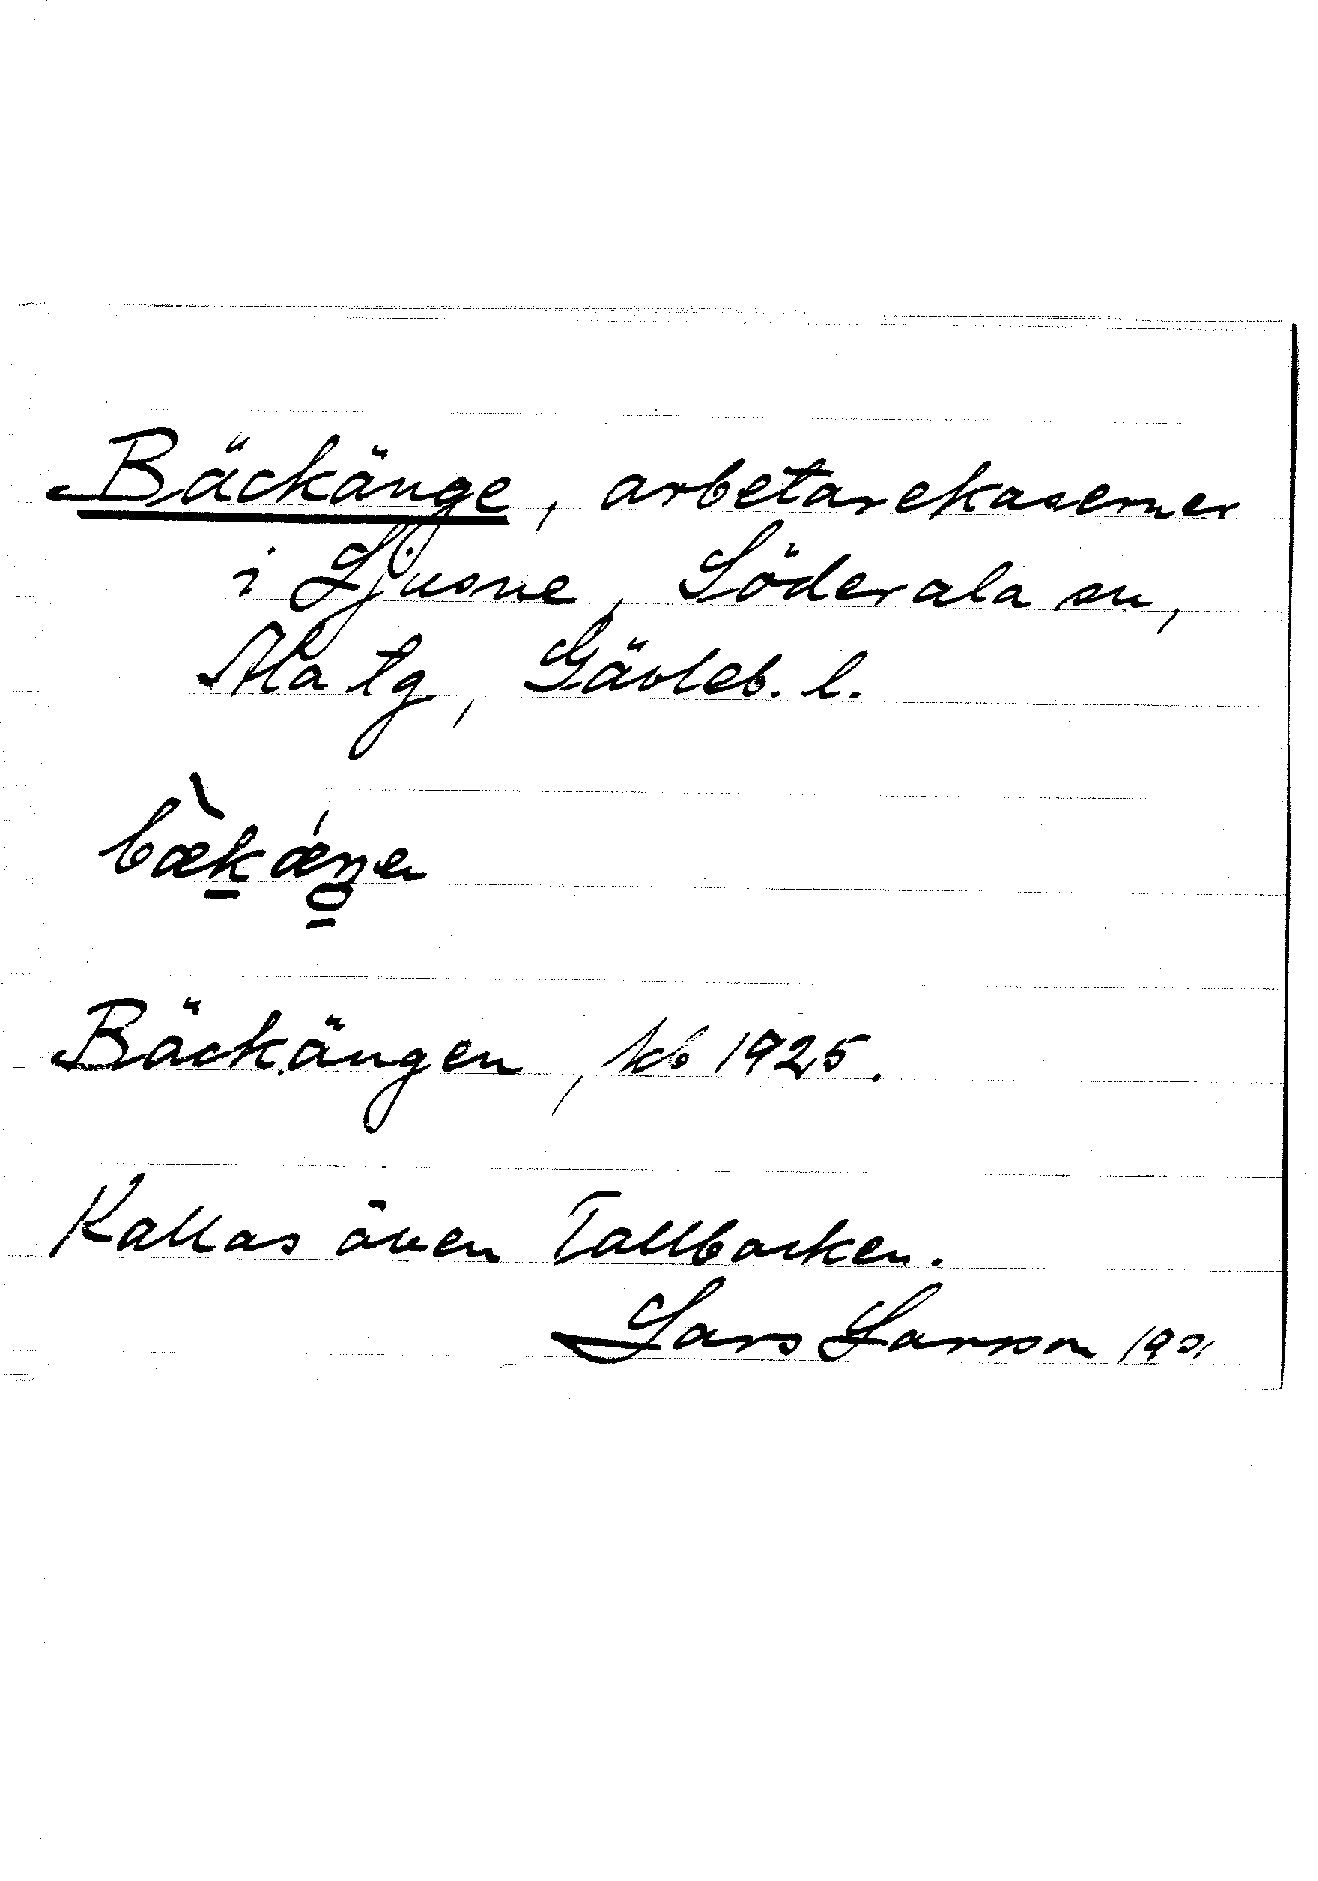 Bäckänge, arbetarekaserner
i Ljusne, Söderala sn,
Ala tg, Gävleb. l.
Bäckängen, kb 1925.
Kallas även Tallbacken.
Lars Larsson